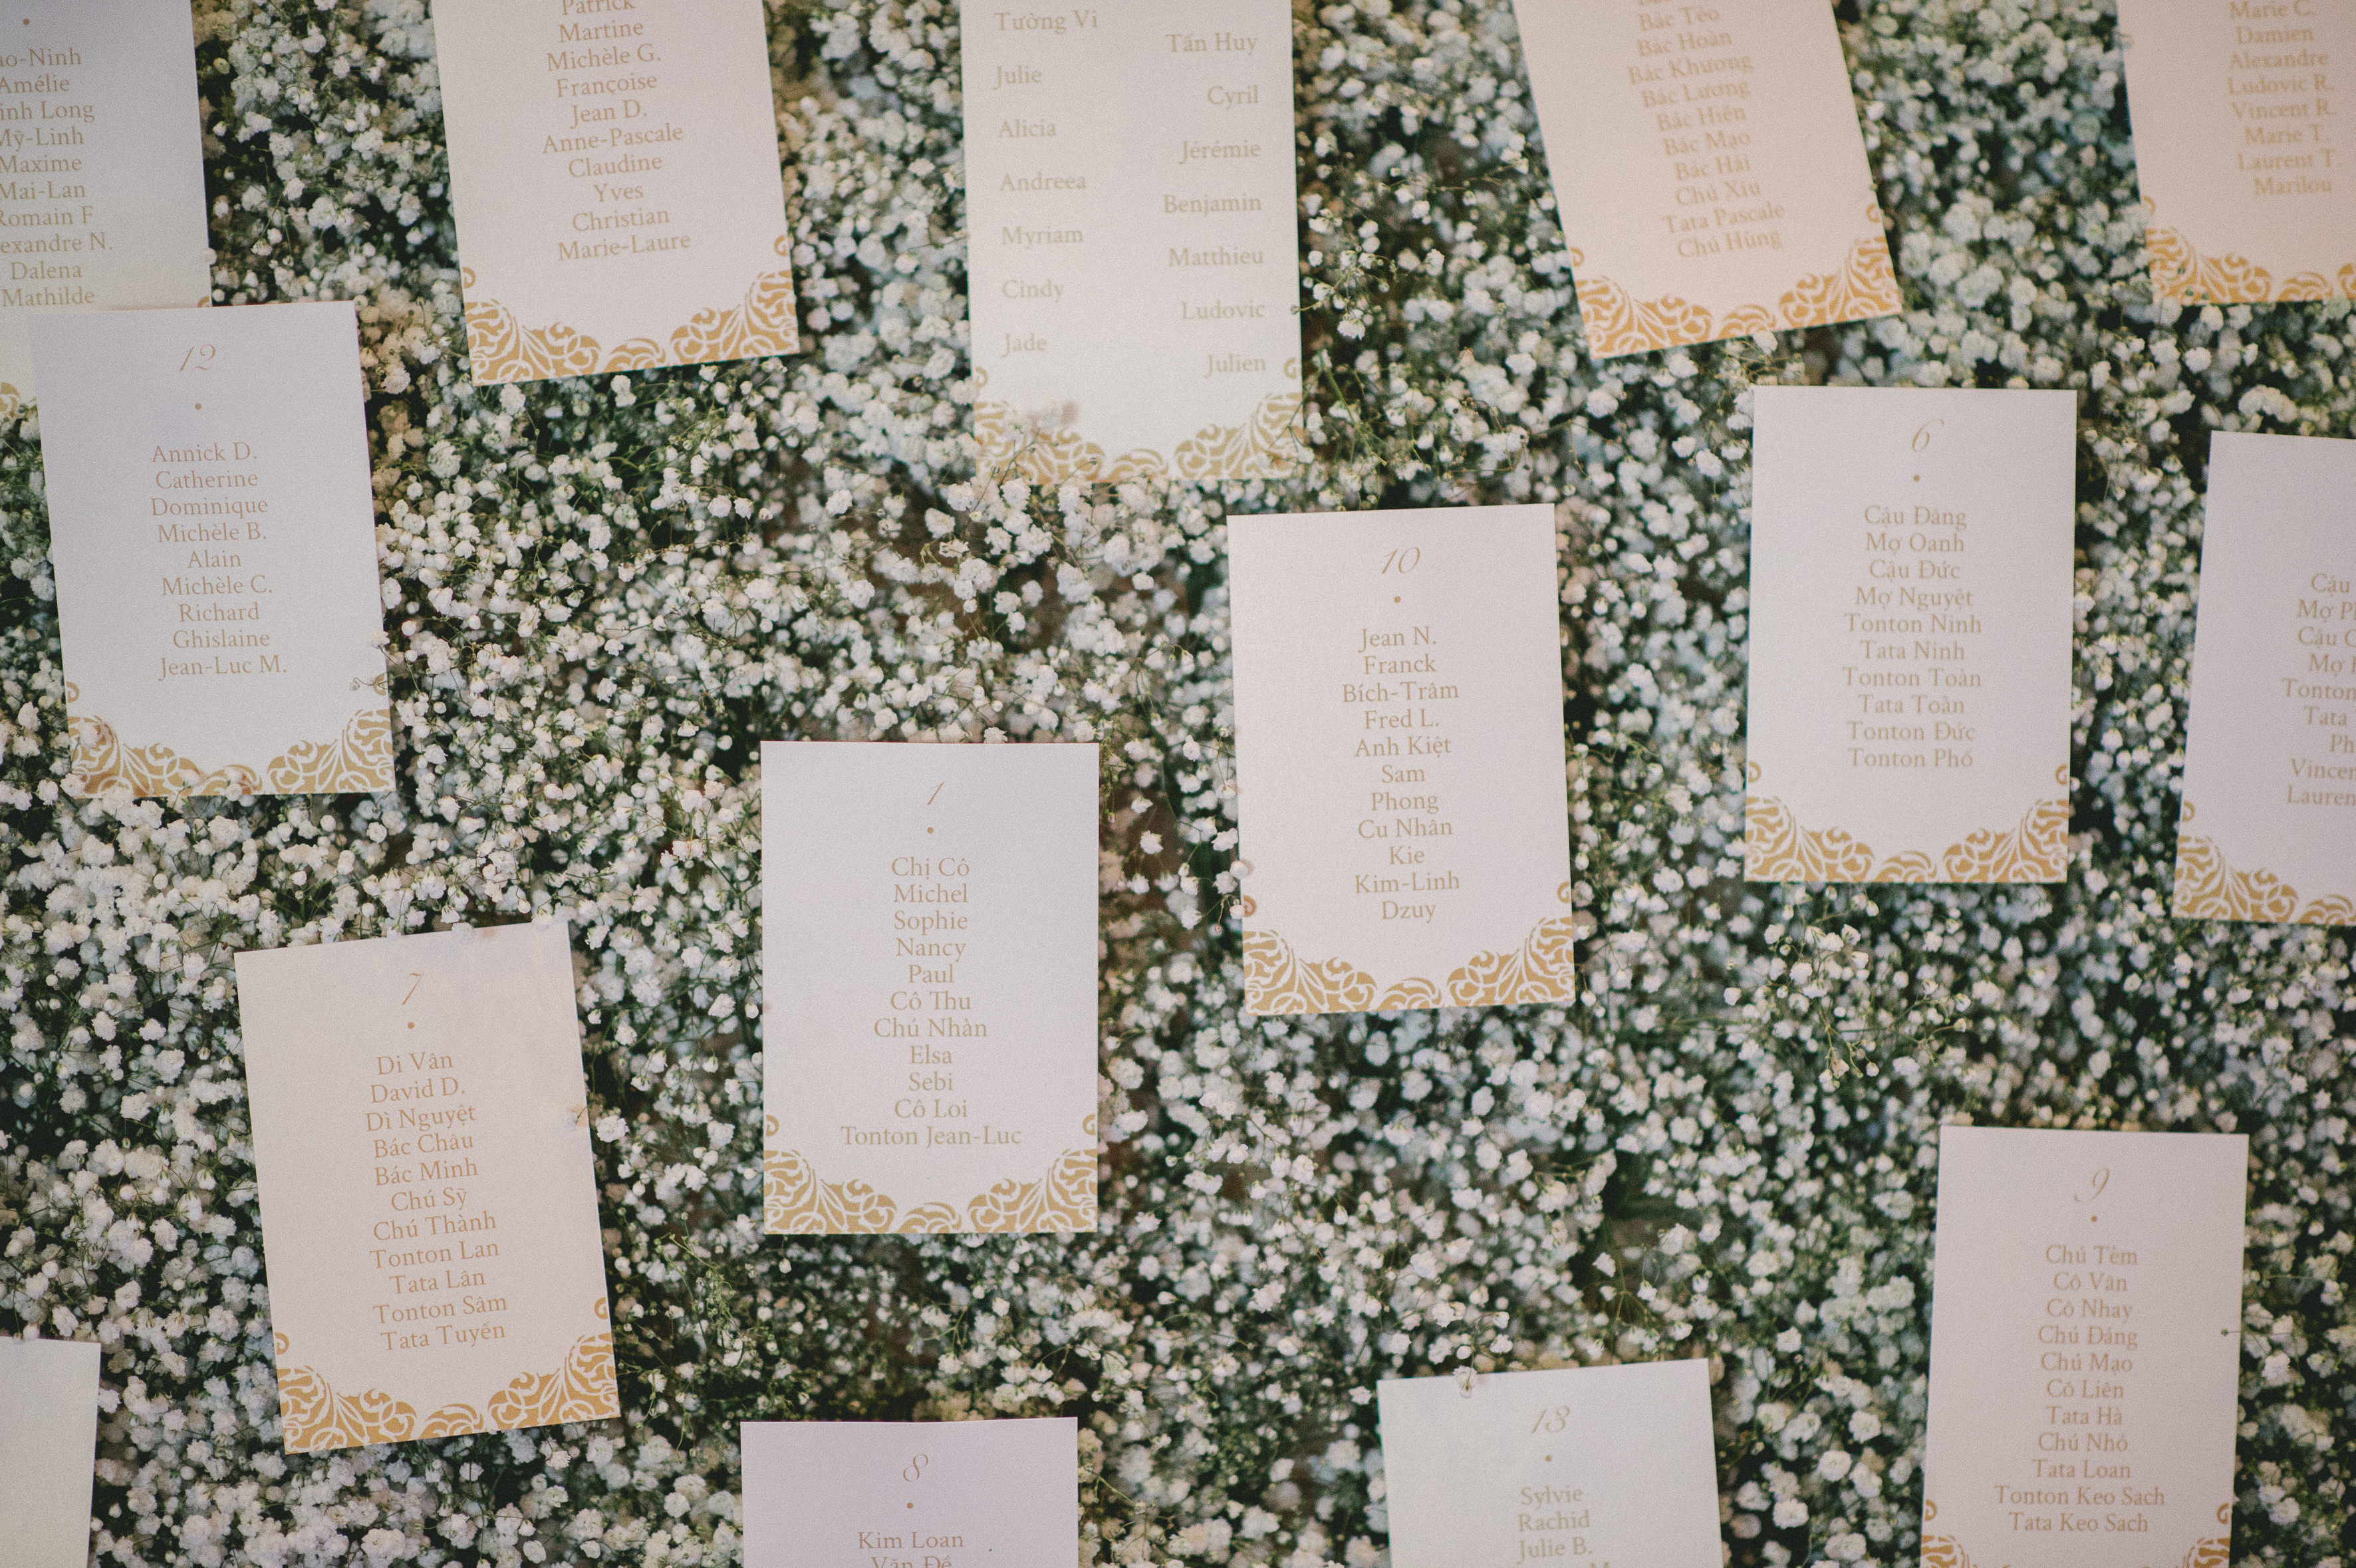 Amélie
Long
Mỹ-Linh
Maxime
Mai-Lan
Romain F
N.
Dalena
Mathilde
Patrick
Martine
Michèle G.
Françoise
Jean D.
Anne-Pascale
Claudine
Yves
Christian
Marie-Laure
Tường Vi
Tấn Huy
Julie
Cyril
Alicia
Jérémie
Andreea
Benjamin
Myriam
Matthieu
Cindy
Ludovic
Jade
Julien
Bác Tèo
Bác Hoàn
Bác Khương
Bác Lương
Bác Hiên
Bác Mao
Bác Hải
Chú Xíu
Tata Pascale
Chú Hùng
Marie C.
Damien
Alexandre
Ludovic R.
Vincent R.
Marie T.
Laurent T.
Marilou
12
Annick D.
Catherine
Dominique
Michèle B.
Alain
Michèle C.
Richard
Ghislaine
Jean-Luc M.
10
Jean N.
Franck
Bích-Trâm
Fred L.
Anh Kiệt
Sam
Phong
Cu Nhân
Kie
Kim-Linh
Dzuy
6
Cậu Đăng
Mợ Oanh
Cậu Đức
Mợ Nguyệt
Tonton Ninh
Tata Ninh
Tonton Toàn
Tata Toàn
Tonton Đức
Tonton Phó
Cậu
Mợ
Cậu
Mợ
Tonton
Tata
7
Di Vân
David D.
Dì Nguyệt
Bác Châu
Bác Minh
Chú Sỹ
Chú Thành
Tonton Lan
Tata Lân
Tonton Sâm
Tata Tuyến
1
Chị Cô
Michel
Sophie
Nancy
Paul
Cô Thu
Chú Nhàn
Elsa
Sebi
Cô Loi
Tonton Jean-Luc
9
Chú Tèm
Cô Vân
Cô Nhay
Chú Đáng
Chú Mạo
Cô Liên
Tata Hà
Chú Nhỏ
Tata Loan
Tonton Keo Sach
Tata Keo Sach
8
Kim Loan
Văn Đề
13
Sylvie
Rachid
Julie B.